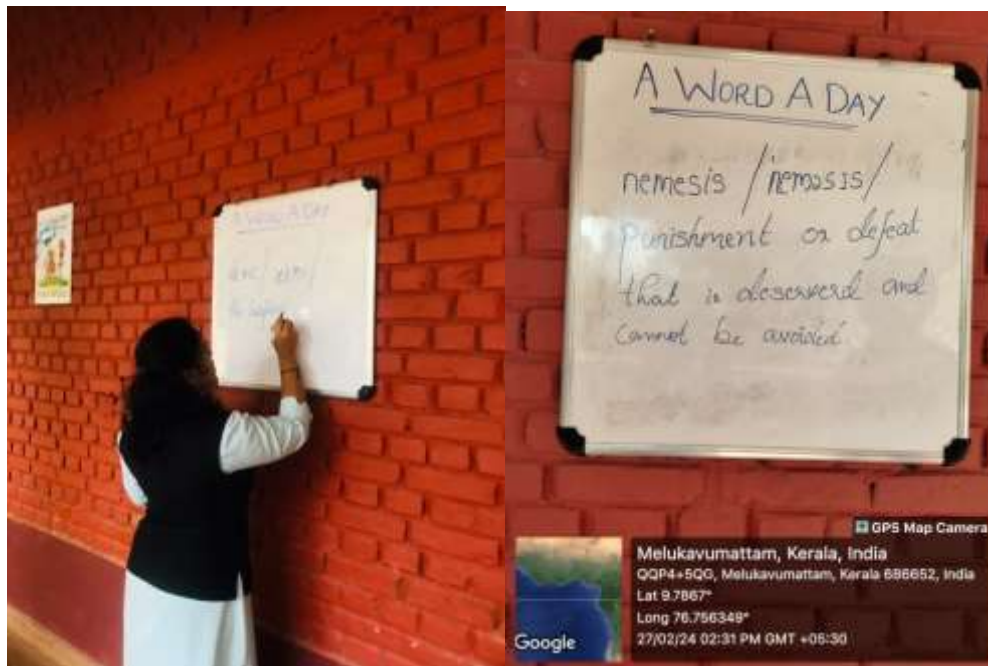 A WORD A DAY
A WORD A DAY
nemesis /nemәsɪs/
Punishment or defeat
that is deserved and
cannot be avoided
GPS Map Camera
Melukavumattam, Kerala, India
QQP4+5QG, Melukavumattam, Kerala 686652, India
Lat 9.7867°
Long 76.756349°
27/02/24 02:31 PM GMT +05:30
Google